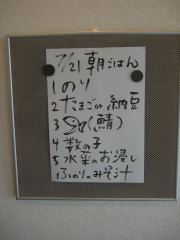 7/21 朝ごはん
1 のり
2 たまごor納豆
3 (鯖)
4 数の子
5 水菜のお浸し
ふのりのみそ汁